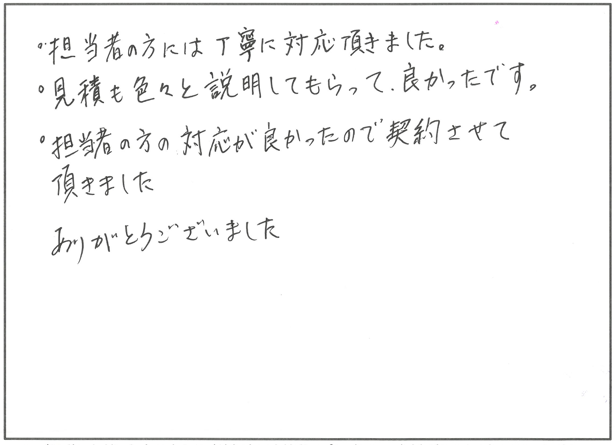 °担当者の方には丁寧に対応頂きました。
°見積も色々と説明してもらって、良かったです。
°担当者の方の対応が良かったので契約させて
頂きました
ありがとうございました